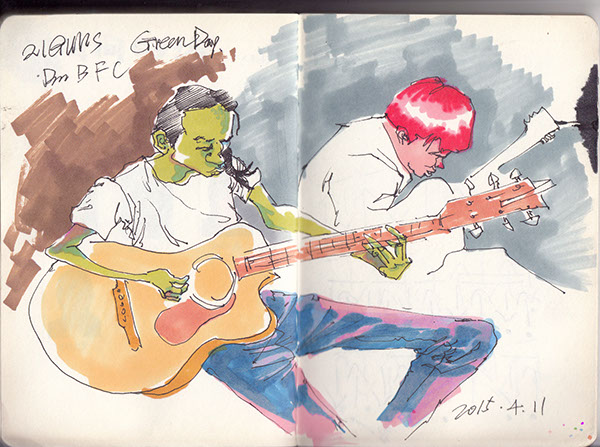 21GUNS Green Day.
Dm B F C
2015.4.11